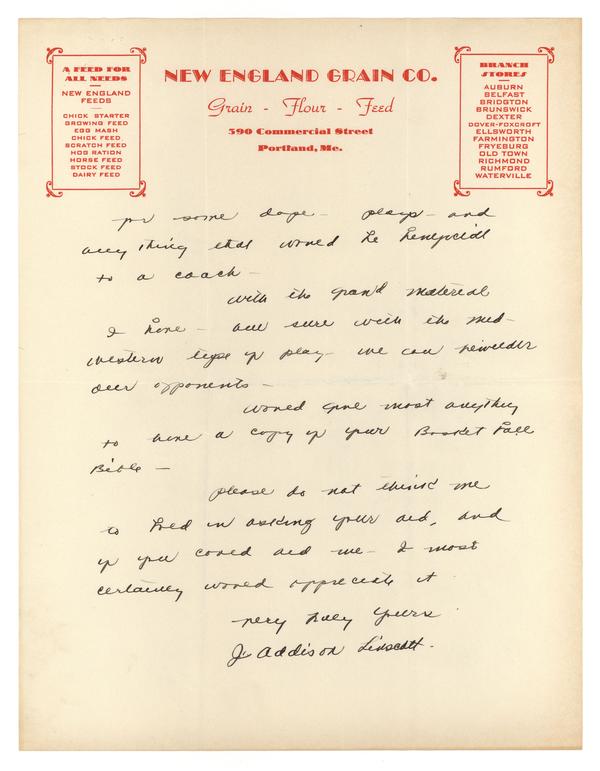 A FEED FOR
ALL NEEDS
NEW ENGLAND
FEEDS
CHICK STARTER
GROWING FEED
EGG MASH
CHICK FEED
SCRATCH FEED
HOG RATION
HORSE FEED
STOCK FEED
DAIRY FEED
NEW ENGLAND GRAIN CO.
Grain - Flour - Feed
590 Commercial Street
Portland, Me.
BRANCH
STORES
AUBURN
BELFAST
BRIDGTON
BRUNSWICK
DEXTER
DOVER-FOXCROFT
ELLSWORTH
FARMINGTON
FRYEBURG
OLD TOWN
RICHMOND
RUMFORD
WATERVILLE
for some dope - plays - and
any thing that would be beneficial
to a coach -
With the grand material
I have - am sure with the Mid-
western type of play - we can bewilder
our opponents -
Would give most anything
to have a copy of your Basket Ball
Bible -
Please do not think me
to bold in asking your aid, and
if you could aid me - I most
certainly would appreciate it
Very truly yours
J. Addison Linscott.